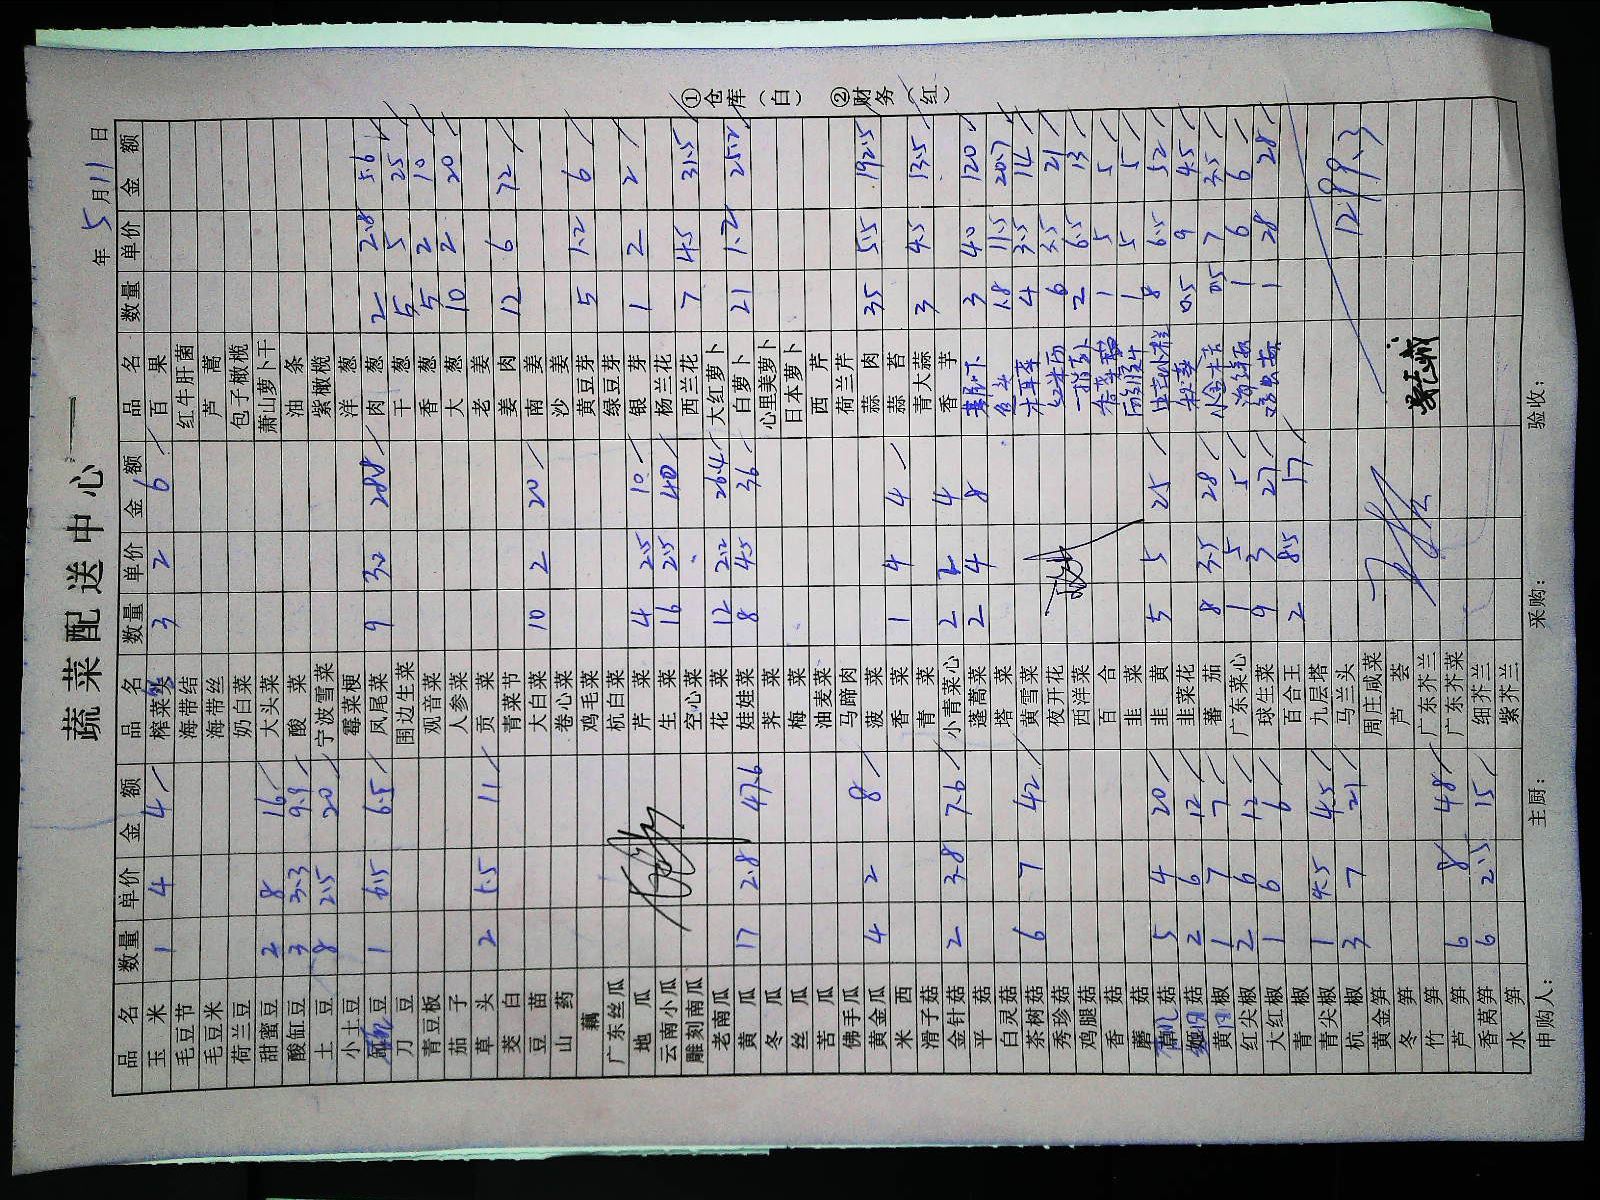 蔬菜配送中心
年 5 月 11 日
品名 数量 单价 金额 品名 数量 单价 金额 品名 数量 单价 金额
玉米 1 4 4 榨菜 3 2 6 百果
毛豆节 海带结 红牛肝菌
毛豆米 海带丝 芦蒿
荷兰豆 奶白菜 包子橄榄
甜蜜豆 2 8 16 大头菜 萧山萝卜干
酸缸豆 3 3.3 9.9 酸菜 油条
土豆 8 2.5 20 宁波雪菜 紫橄榄
小土豆 霉菜梗 洋葱
豆 1 6.5 6.5 凤尾菜 9 3.2 28.8 肉葱 2 2.8 5.6
刀豆 围边生菜 干葱 5 5 25
青豆板 观音菜 香葱 5 2 10
茄子 人参菜 大葱 10 2 20
草头 2 5.5 11 贡菜 老姜
茭白 青菜节 姜肉 12 6 72
豆苗 大白菜 10 2 20 南姜
山药 卷心菜 沙姜
藕 鸡毛菜 黄豆芽 5 1.2 6
广东丝瓜 杭白菜 绿豆芽
地瓜 芹菜 4 2.5 10 银芽 1 2 2
云南小瓜 生菜 16 2.5 40 杨兰花
雕刻南瓜 空心菜 西兰花 7 4.5 31.5
老南瓜 花菜 12 2.2 26.4 大红萝卜
黄瓜 17 2.8 47.6 娃娃菜 8 4.5 36 白萝卜 21 1.2 25.2
冬瓜 荠菜 心里美萝卜
丝瓜 梅菜 日本萝卜
苦瓜 油麦菜 西芹
佛手瓜 马蹄肉 荷兰芹
黄金瓜 4 2 8 菠菜 蒜肉 35 5.5 192.5
米西 香菜 1 4 4 蒜苔
滑子菇 青菜 青大蒜 3 4.5 13.5
金针菇 2 3.8 7.6 小青菜心 2 2 4 香芋
平菇 蓬蒿菜 2 4 8 3 40 120
白灵菇 塔菜 1.8 11.5 20.7
茶树菇 6 7 42 黄雪菜 木耳菜 4 3.5 14
秀珍菇 夜开花 红米苋 6 3.5 21
鸡腿菇 西洋菜 2 6.5 13
香菇 百合 1 5 5
蘑菇 韭菜 1 5 5
菇 5 4 20 韭黄 5 5 25 8 6.5 52
椒 2 6 12 韭菜花 0.5 9 4.5
黄椒 1 7 7 蕃茄 8 3.5 28 0.5 7 3.5
红尖椒 2 6 12 广东菜心 1 5 5 1 6 6
大红椒 1 6 6 球生菜 9 3 27 1 28 28
青椒 百合王 2 8.5 17
青尖椒 1 4.5 4.5 九层塔
杭椒 3 7 21 马兰头 1299.3
黄金笋 周庄咸菜
冬笋 芦荟
竹笋 广东芥兰
芦笋 6 8 48 广东芥菜
香莴笋 6 2.5 15 细芥兰
水笋 紫芥兰
申购人： 主厨： 采购： 验收：
①仓库（白） ②财务（红）